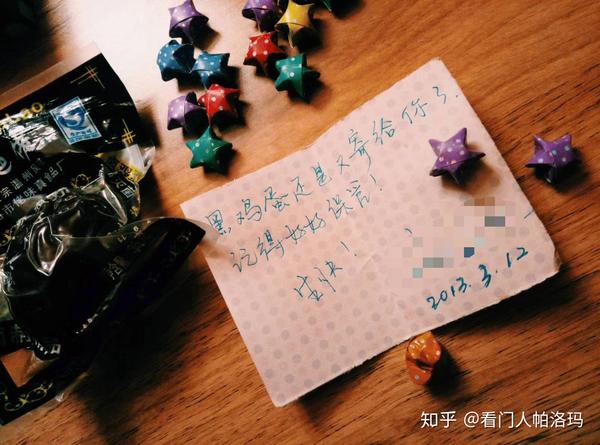 黑鸡蛋还是又寄给你了.
记得好好
生快!
2013.3.12
知乎 @看门人帕洛玛